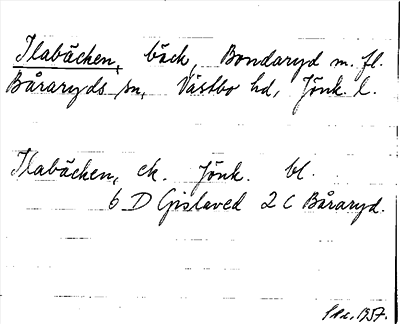 Ilabäcken, bäck, Bondaryd m. fl.
Båraryds sn, Västbo hd, Jönk. l.
Ilabäcken, ek. Jönk. bl.
6 D Gislaved 2 C Båraryd.
1957.